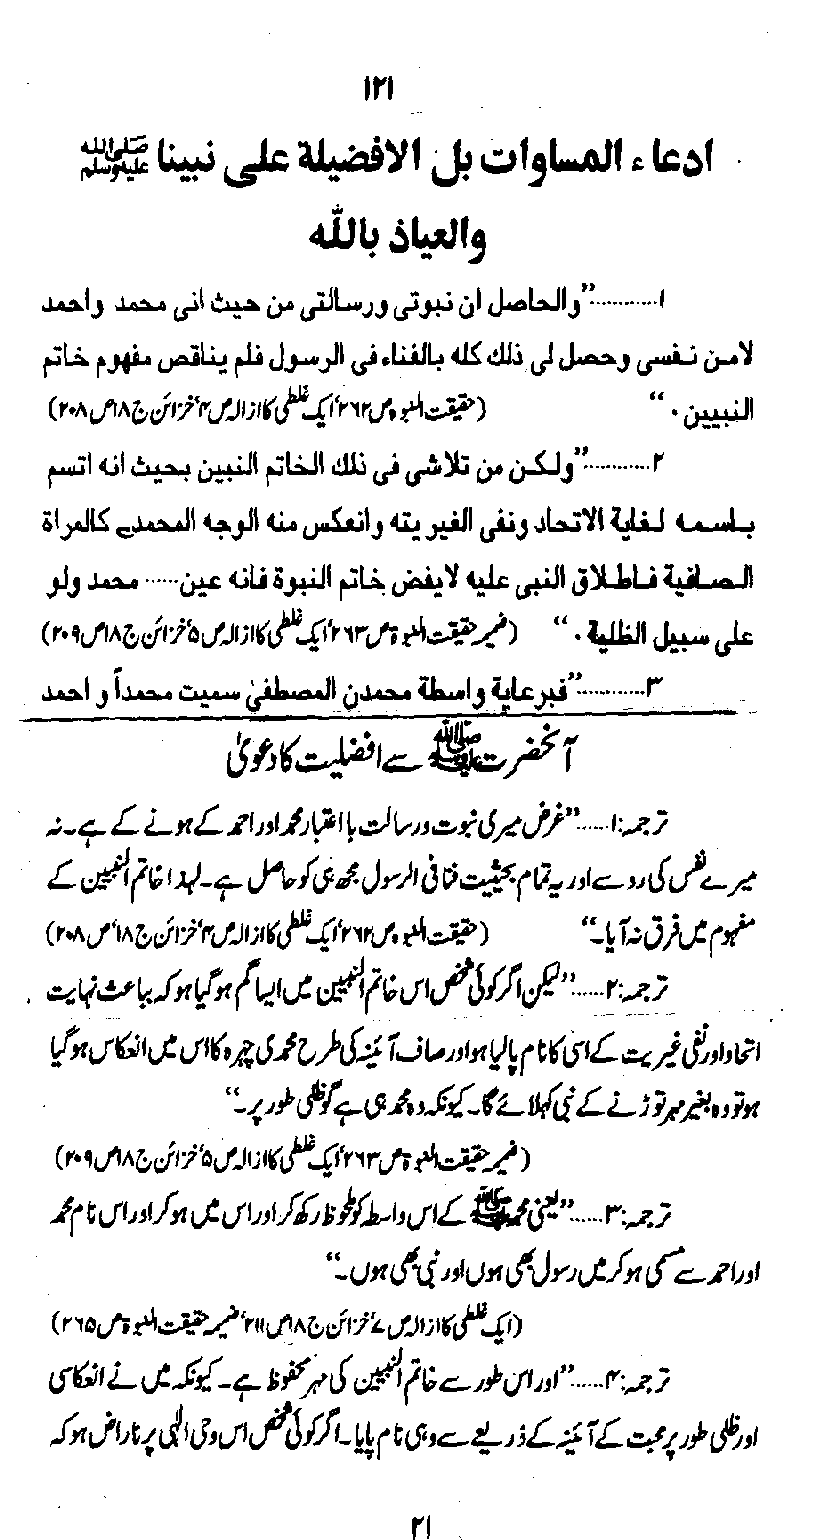 ۱۲۱
ادعاء المساوات بل الافضیلة علی نبینا ﷺ
والعیاذ باللّٰه
۱............”والحاصل ان نبوتی ورسالتی من حیث انی محمد واحمد
لامن نفسی وحصل لی ذلك كله بالفناء فی الرسول فلم یناقص مفهوم خاتم
النبیین ۰“ (حقیقت النبوۃ ص۲۶۲، ایک غلطی کا ازالہ ص۴، خزائن ج۱۸ ص۲۰۸)
۲............”ولكن من تلاشی فی ذلك الخاتم النبین بحیث انه اتسم
باسمه لغایة الاتحاد ونفی الغیریته وانعکس منه الوجه المحمدے کالمراة
الصافیة فاطلاق النبی علیه لایفض خاتم النبوة فانه عین...... محمد ولو
علی سبیل الظلیة ۰“ (ضمیر حقیقت النبوۃ ص۲۶۳، ایک غلطی کا ازالہ ص۵، خزائن ج۱۸ ص۲۰۹)
۳............”فبرعایة واسطة محمدن المصطفیٰ سمیت محمداً و احمد
آنحضرت ﷺ سے افضلیت کا دعویٰ
ترجمہ:۱......”غرض میری نبوت ورسالت با اعتبار محمد اور احمد کے ہونے کے ہے۔ نہ
میرے نفس کی رو سے اور یہ تمام بحیثیت فنا فی الرسول مجھ ہی کو حاصل ہے۔ لہذا خاتم النّبیین کے
مفہوم میں فرق نہ آیا۔“ (حقیقت النبوۃ ص۲۶۲، ایک غلطی کا ازالہ ص۴، خزائن ج۱۸، ص۲۰۸)
ترجمہ:۲......”لیکن اگر کوئی شخص اس خاتم النّبیین میں ایسا گم ہو گیا ہو کہ بباعث نہایت
اتحاد اور نفی غیریت کے اسی کا نام پا لیا ہو اور صاف آئینہ کی طرح محمدی چہرہ کا اس میں انعکاس ہو گیا
ہو تو وہ بغیر مہر توڑنے کے نبی کہلائے گا۔ کیونکہ وہ محمد ہی ہے گو ظلی طور پر۔“
(ضمیر حقیقت النبوۃ ص۲۶۳، ایک غلطی کا ازالہ ص۵، خزائن ج۱۸ ص۲۰۹)
ترجمہ:۳......”یعنی محمد ﷺ کے اس واسطہ کو ملحوظ رکھ کر اور اس میں ہو کر اور اس نام محمد
اور احمد سے مسمی ہو کر میں رسول بھی ہوں اور نبی بھی ہوں۔“
(ایک غلطی کا ازالہ ص۷، خزائن ج۱۸ ص۲۱۱، ضمیر حقیقت النبوۃ ص۲۶۵)
ترجمہ:۴......”اور اس طور سے خاتم النّبیین کی مہر محفوظ ہے۔ کیونکہ میں نے انعکاسی
اور ظلی طور پر محبت کے آئینہ کے ذریعے سے وہی نام پایا۔ اگر کوئی شخص اس وحی الٰہی پر ناراض ہو کہ
۲۱